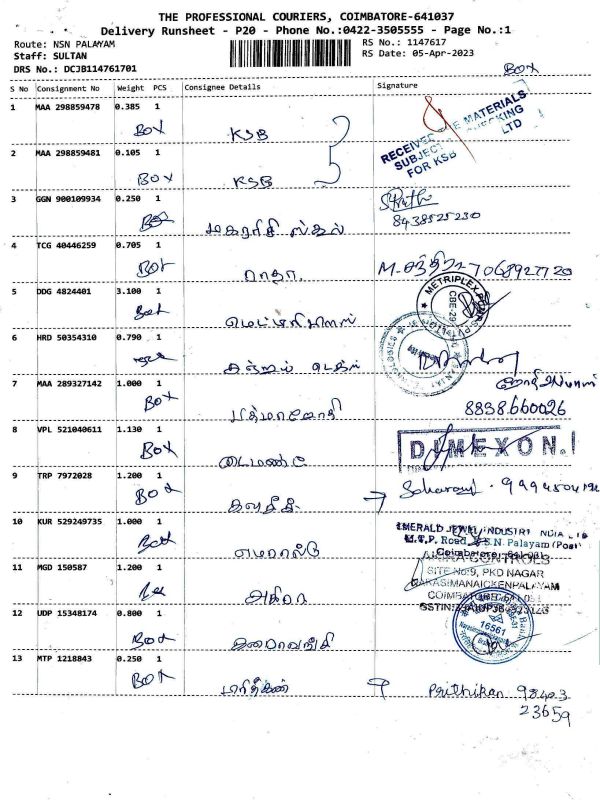 THE PROFESSIONAL COURIERS, COIMBATORE-641037
Delivery Runsheet - P20 - Phone No.:0422-3505555 - Page No.:1
Route: NSN PALAYAM
RS No.: 1147617
Staff: SULTAN
RS Date: 05-Apr-2023
DRS No.: DCJB114761701
BOX
S No Consignment No Weight PCS Consignee Details Signature
1 MAA 298859478 0.385 1
BOX KSB
RECEIVED MATERIALS
SUBJECT CHECKING
FOR KSB LTD
2 MAA 298859481 0.105 1
BOX KSB
3 GGN 900109934 0.250 1
8438525230
BOX மகரிசி ஸ்கூல்
4 TCG 40446259 0.705 1
BOX ராதா.
M. சந்திரா 7068927720
5 DDG 4824401 3.100 1
METRIPLEX
Box
6 HRD 50354310 0.790 1
7 MAA 289327142 1.000 1
BOX பத்மாஜோதி
8838660026
8 VPL 521040611 1.130 1
BOX டைமண்ட்
DIMEXON.
9 TRP 7972028 1.200 1
BOX
10 KUR 529249735 1.000 1
EMERALD JEWEL INDUSTRY INDIA LTD
M.T.P. Road, S.N. Palayam (Post)
Coimbatore- 641 031
Box எமரால்டு
11 MGD 150587 1.200 1
AKIRA CONTROLS
SITE NO:9, PKD NAGAR
RAKASIMANAICKENPALAYAM
அகிரா
12 UDP 15348174 0.800 1
16561
BOX கனராவங்கி
13 MTP 1218843 0.250 1
BOX பிரித்திகன்
Prithikan 98403
23659